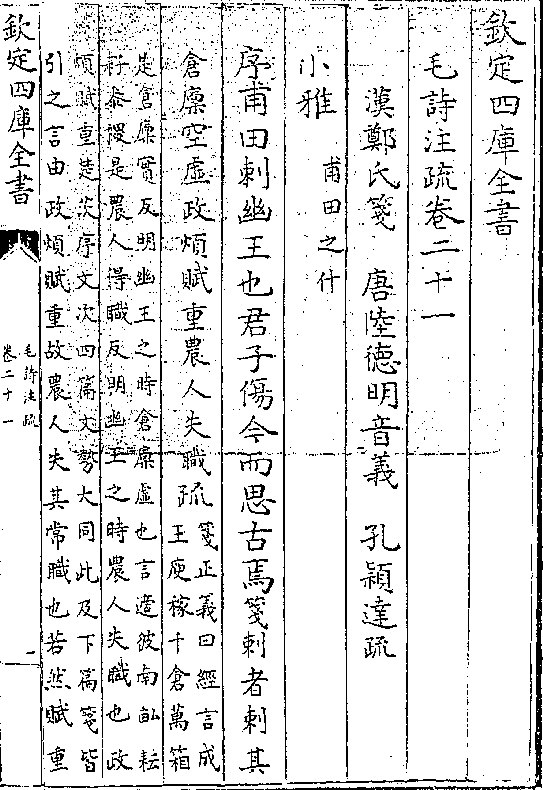 欽定四庫全書
毛詩注疏卷二十一
漢鄭氏箋 唐陸德明音義 孔穎達疏
小雅 甫田之什
序甫田刺幽王也君子傷今而思古焉箋刺者刺其
倉廩空虛政煩賦重農人失職疏
箋正義曰經言成
王庾稼千倉萬箱
是倉廩實反明幽王之時倉廩虛也言適彼南畝耘
耔黍稷是農人得職反明幽王之時農人失職也政
煩賦重楚茨序文次四篇文勢大同此及下篇箋皆
引之言由政煩賦重故農人失其常職也若然賦重
欽定四庫全書
毛詩注疏
卷二十一
一